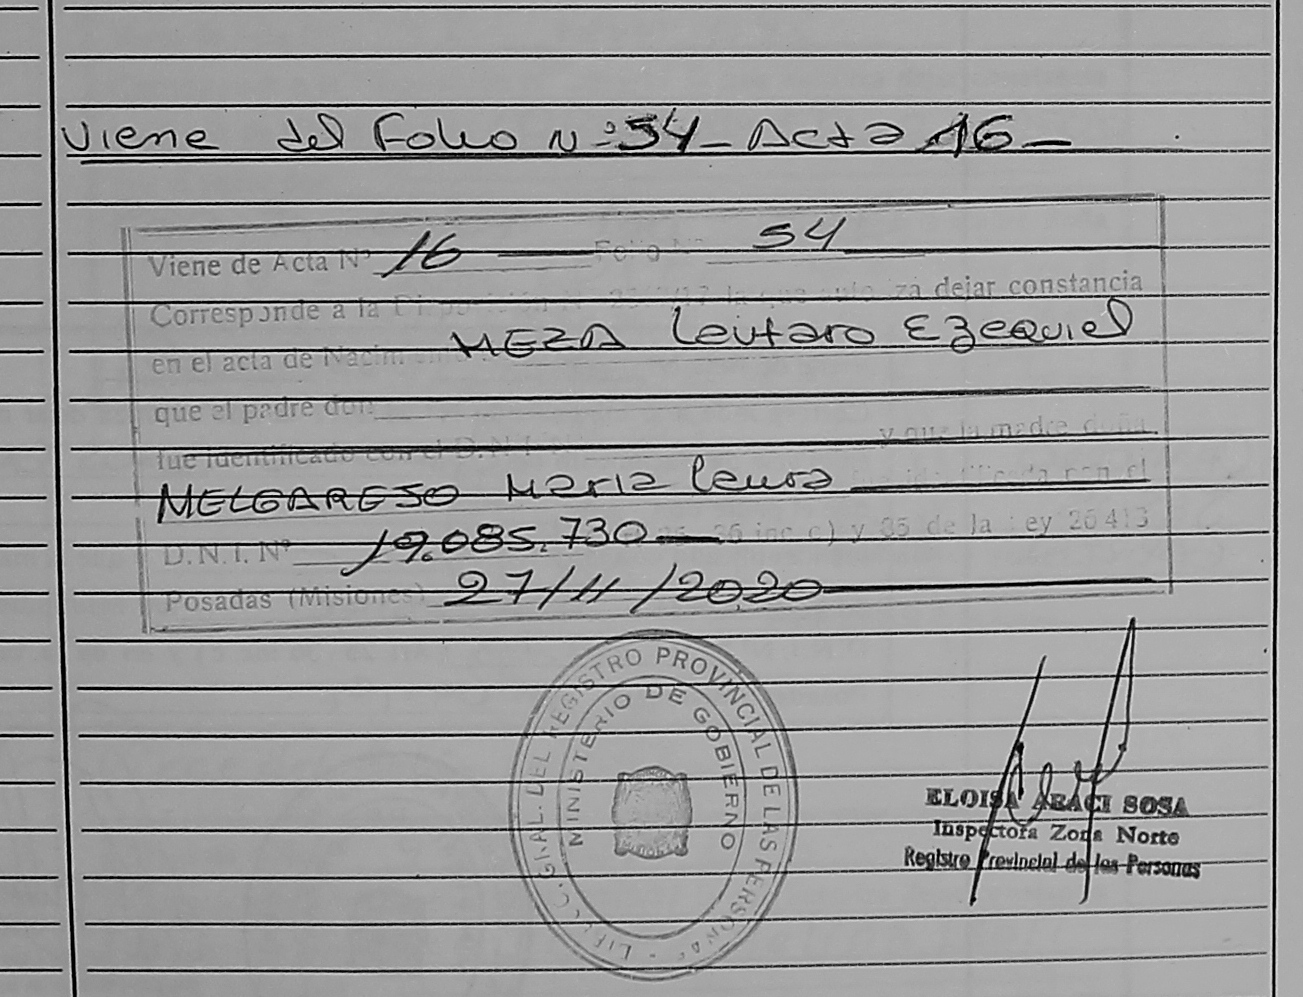 Viene del Folio Nº 54 - Acta 16 -
Viene de Acta Nº 16 Folio Nº 54
Corresponde a la Disposición dejar constancia
en el acta de Nacimiento MEZA Leutaro Ezequiel
que el padre don
fue identificado con el D.N.I. y que la madre doña
MELGAREJO Maria Laura identificada con el
D.N.I. Nº 19.085.730 36 inc c) y 35 de la Ley 26413
Posadas (Misiones) 27/11/2020
GRAL. DEL REGISTRO PROVINCIAL DE LAS PERSONAS
MINISTERIO DE GOBIERNO
ELOISA ABACI SOSA
Inspectora Zona Norte
Registro Provincial de las Personas